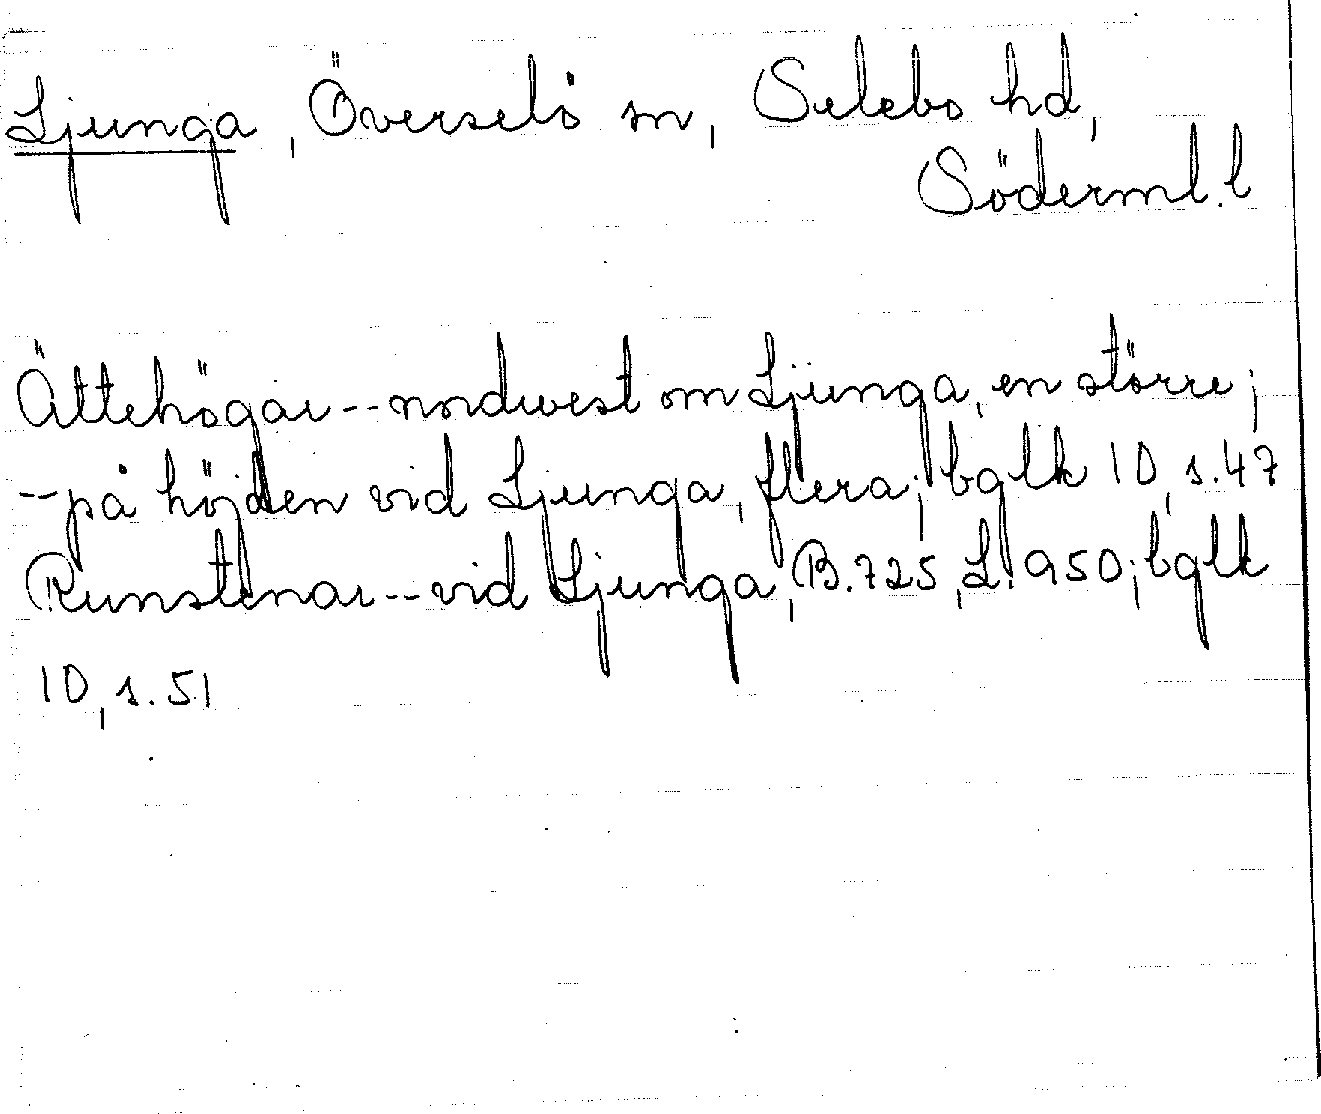 Ljunga, Överselö sn, Selebo hd,
Söderml. l
Ättehögar -- nordwest om Ljunga, en större;
-- på höjden vid Ljunga, flera; bglk 10, s. 47
Runstenar -- vid Ljunga, B. 725, L. 950; bglk
10, s. 51